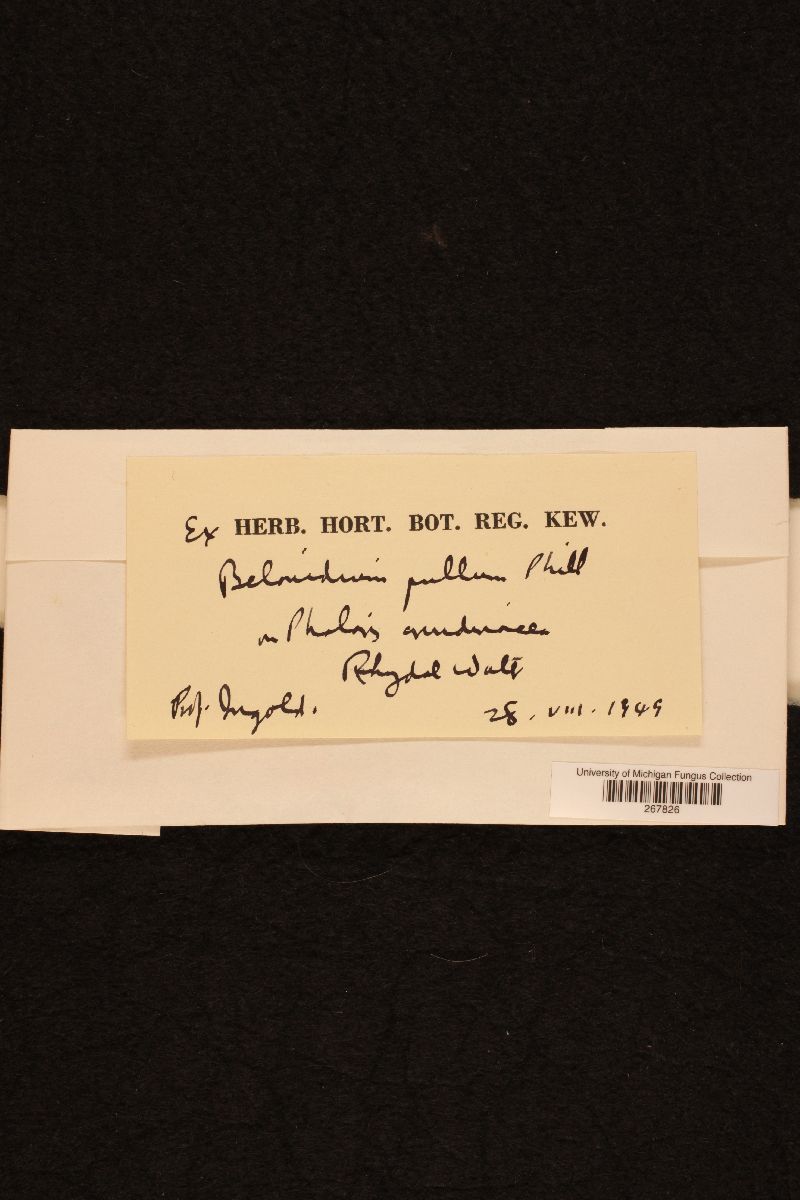 Ex HERB. HORT. BOT. REG. KEW.
Belonidium pullum Phill
on Phalaris arundinacea
Rhydal Watt
Prof. Ingold. 28. VIII. 1949
University of Michigan Fungus Collection
267826